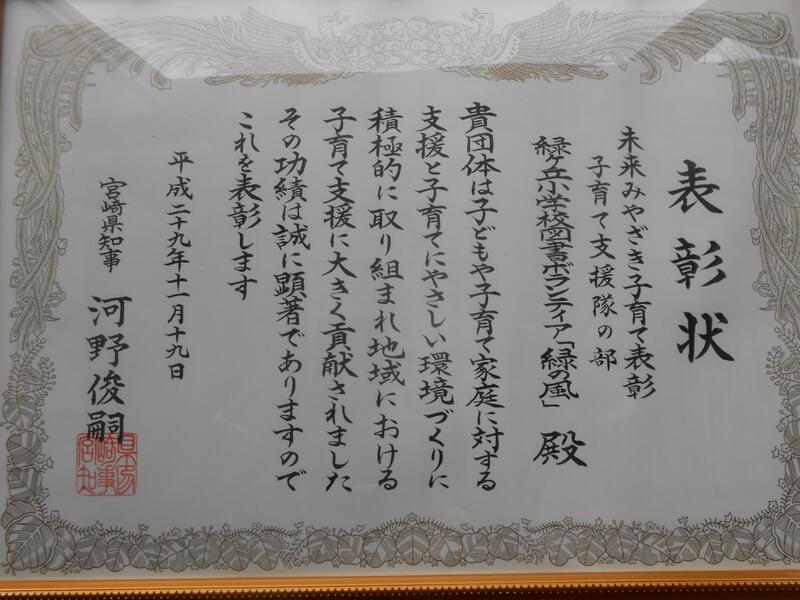 表彰状
未来みやざき子育て表彰
子育て支援隊の部
緑ヶ丘小学校図書ボランティア「緑の風」 殿
貴団体は子どもや子育て家庭に対する
支援と子育てにやさしい環境づくりに
積極的に取り組まれ地域における
子育て支援に大きく貢献されました
その功績は誠に顕著でありますので
これを表彰します
平成二十九年十一月十九日
宮崎県知事 河野俊嗣